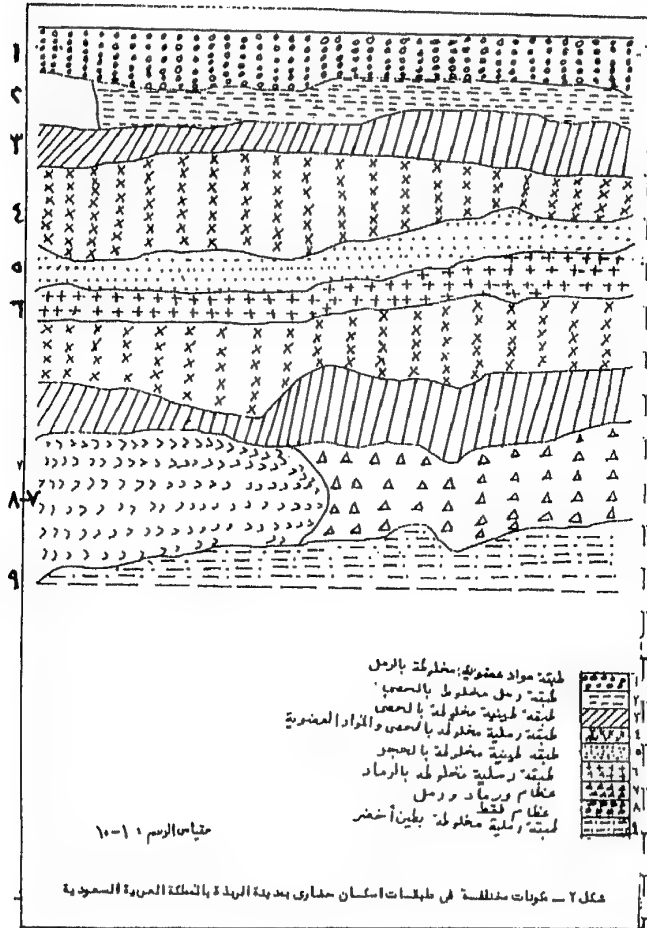 ١
٢
٣
٤
٥
٦
٨-٧
٩
طبقة مواد عضوية مخلوطة بالرمل
١
طبقة رمل مخلوط بالحصى
٢
طبقة طينية مخلوطة بالحصى
٣
طبقة رملية مخلوطة بالحصى والمواد العضوية
٤
طبقة طينية مخلوطة بالحجر
٥
طبقة رملية مخلوطة بالرماد
٦
عظام ورماد ورمل
٧
عظام فقط
٨
طبقة رملية مخلوطة بطين أخضر
٩
مقياس الرسم : ١-١٠
شكل ٢ – مكونات مختلفة في طبقات اسكان حضارى بمدينة الربذة بالمملكة العربية السعودية